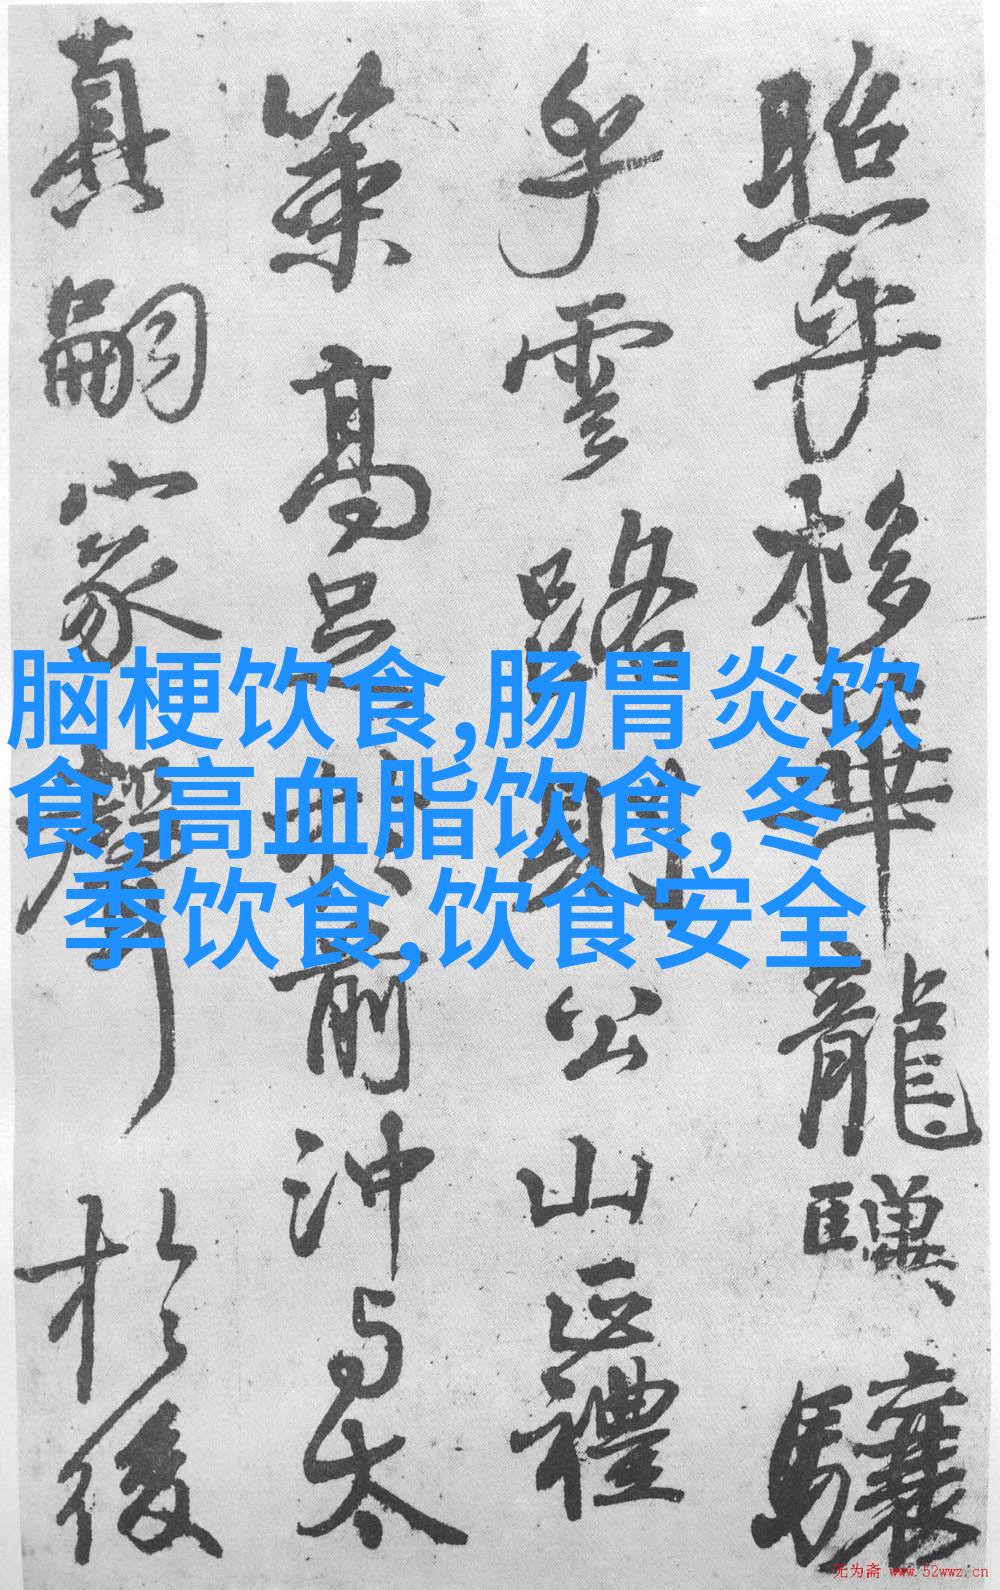 照乎栘華龍驥驤
乎雲路則公山正禮
策高足於前沖与太
真嗣家聲於後
脑梗饮食,肠胃炎饮
食,高血脂饮食,冬
季饮食,饮食安全
无为斋 www.52wwz.cn